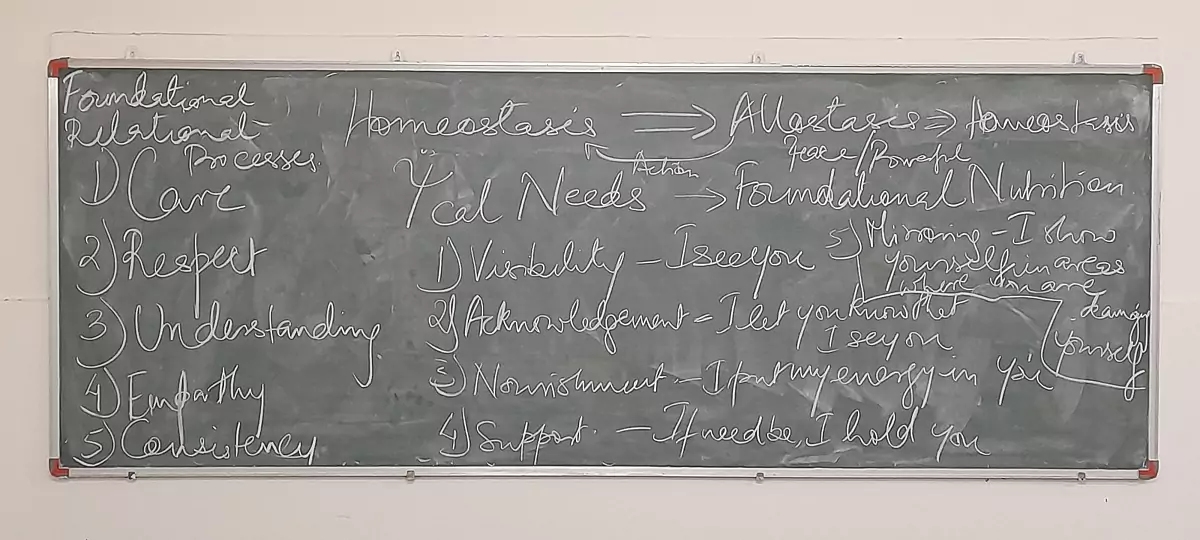 Foundational
Relational
Processes.
1) Care
2) Respect
3) Understanding
4) Empathy
5) Consistency
Homeostasis ⇒ Allostasis ⇒ Homeostasis
Action
Peace/Powerful
Ψcal Needs → Foundational Nutrition
1) Visibility - I see you
2) Acknowledgement = I let you know that
I see you
3) Nourishment - I put my energy in you
4) Support. - If need be, I hold you
5) Mirroring - I show
yourself in areas
where you are
yourself